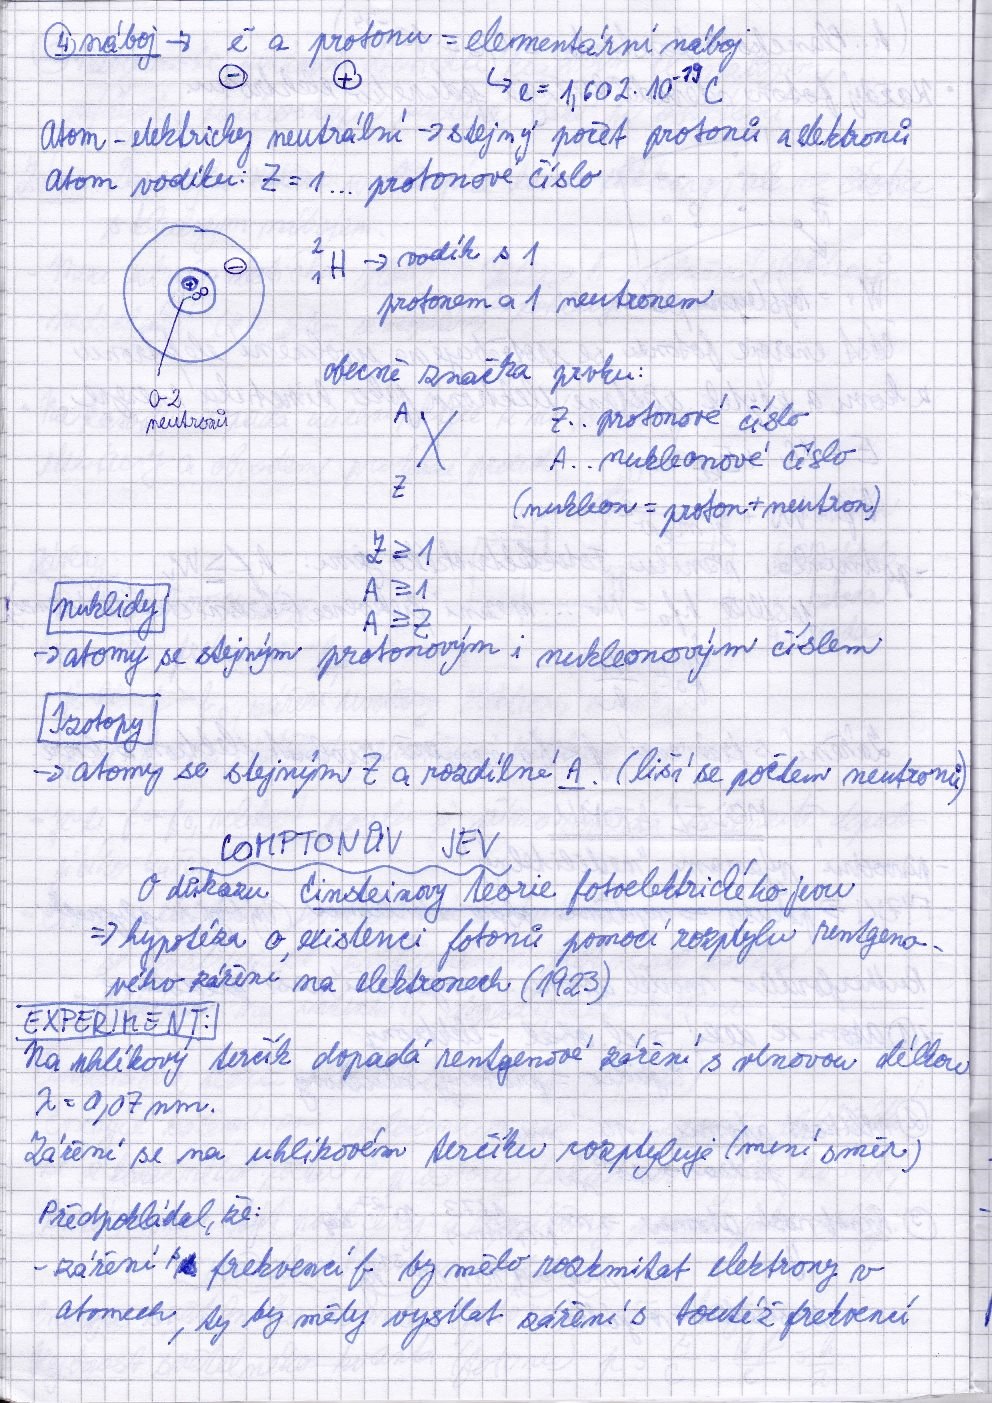 4 náboj → ē a protonu = elementární náboj
⊖ ⊕ ↳ e = 1,602·10⁻¹⁹ C
Atom – elektricky neutrální → stejný počet protonů a elektronů
Atom vodíku: Z = 1 ... protonové číslo
²₁H → vodík s 1
protonem a 1 neutronem
0-2
neutronů
obecně značka prvku:
A X Z
Z.. protonové číslo
A.. nukleonové číslo
(nukleon = proton + neutron)
Z ≥ 1
A ≥ 1
A ≥ Z
nuklidy
→ atomy se stejným protonovým i nukleonovým číslem
Izotopy
→ atomy se stejným Z a rozdílné A. (liší se počtem neutronů)
COMPTONŮV JEV
O důkazu Einsteinovy teorie fotoelektrického jevu
⇒ hypotéza o existenci fotonů pomocí rozptylu rentgeno-
vého záření na elektronech (1923)
EXPERIMENT:
Na uhlíkový terčík dopadá rentgenové záření s vlnovou délkou
λ = 0,07 nm.
Záření se na uhlíkovém terčíku rozptyluje (mění směr)
Předpokládal, že:
- záření s frekvencí f by mělo rozkmitat elektrony v
atomech, ty by měly vysílat záření s toutéž frekvencí